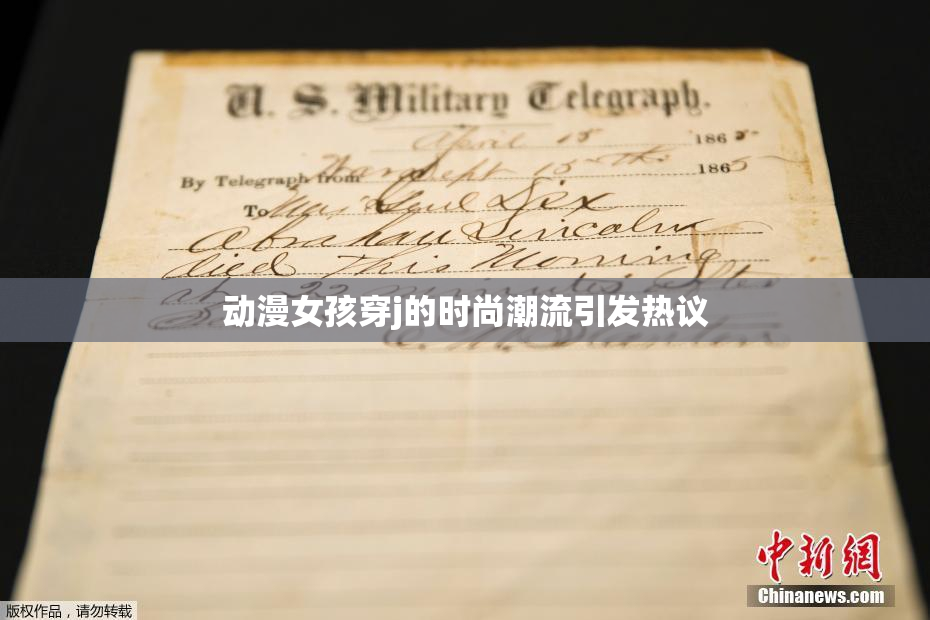 U. S. Military Telegraph.
April 15 1865
By Telegraph from War Dept 15th 1865
To Maj Genl Dix
Abraham Lincoln
died This Morning
at 22 minutes after
动漫女孩穿j的时尚潮流引发热议
E. M. Stanton
中新网
Chinanews.com
版权作品，请勿转载